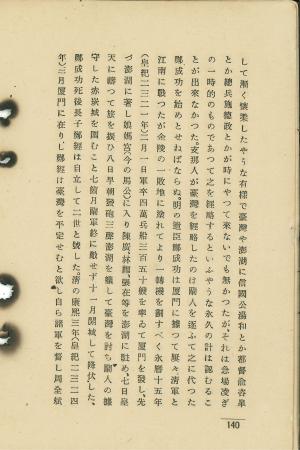 して漸く懐柔したやうな有様で臺灣や澎湖に信國公湯和とか都督俞咨皐
とか總兵施德政とかが時にやつて來ないでも無かつたが、それは急場凌ぎ
の一時的のものであつて之を經略するといふやうな永久の計は認むるこ
とが出來なかつた。支那人が臺灣を經略したのは蘭人を逐ふて之に代つた
鄭成功を始めとせねばならぬ。明の遺臣鄭成功は厦門に據つて屢々清軍と
江南に戰つたが金陵の一敗地に塗れてより一轉機を劃すべく永曆十五年
(皇紀二三二一年)三月一日軍卒四萬兵船三百五十艘を率ゐて厦門を發し、先
づ澎湖に著し娘媽宮(今の馬公)に入り陳廣、林福、張在等を澎湖に駐め、七日皇
天に禱つて旅を振ひ八日早朝發砲三聲澎湖を纜して臺灣を討ち蘭人の據
守した赤崁城を圍むこと七箇月蘭軍終に敵せず十一月開城して降伏した。
鄭成功死後長子鄭經は自立して二世と號した。清の康熙三年(皇紀二三二四
年)三月厦門に在りし鄭經は臺灣を平定せむと欲し自ら諸軍を督し周全斌
140